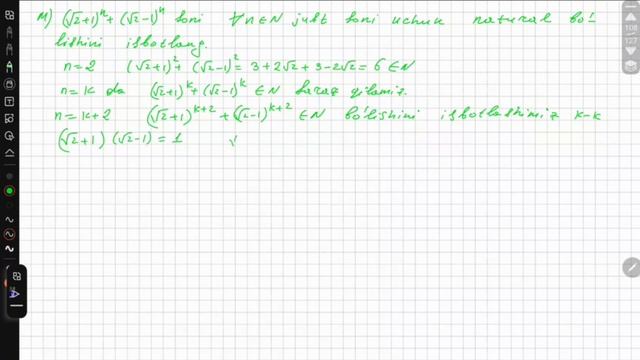 M) (√2+1)ⁿ + (√2-1)ⁿ soni ∀n∈N juft soni uchun natural bo'-
lishini isbotlang.
n=2 (√2+1)² + (√2-1)² = 3+2√2+3-2√2 = 6 ∈N
n=k da (√2+1)ᵏ + (√2-1)ᵏ ∈N faraz qilamiz.
n=k+2 (√2+1)ᵏ⁺² + (√2-1)ᵏ⁺² ∈N bo'lishini isbotlashimiz k-k
(√2+1)(√2-1) = 1
108
127